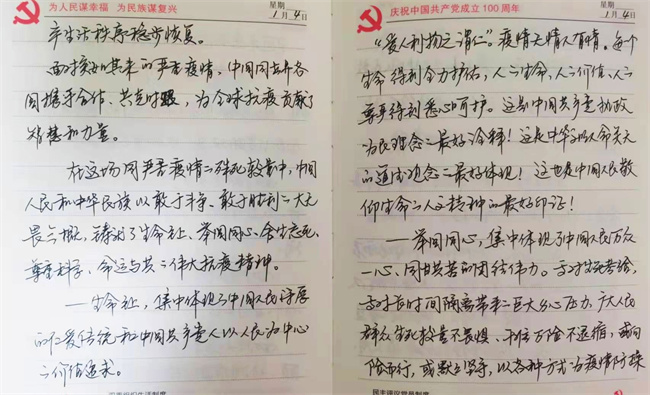 为人民谋幸福 为民族谋复兴
星期
1月4日
产生活秩序稳步恢复。
面对突如其来的严重疫情,中国同世界各
国携手合作、共克时艰,为全球抗疫贡献了
智慧和力量。
在这场同严重疫情的殊死较量中,中国
人民和中华民族以敢于斗争、敢于胜利的大无
畏气概,铸就了生命至上、举国同心、舍生忘死、
尊重科学、命运与共的伟大抗疫精神。
——生命至上,集中体现了中国人民深厚
的仁爱传统和中国共产党人以人民为中心
的价值追求。
庆祝中国共产党成立100周年
星期
1月4日
“爱人利物之谓仁”疫情无情人有情。每个
生命得到全力护佑,人的生命、人的价值、人的
尊严得到悉心呵护。这是中国共产党执政
为民理念的最好诠释!这是中华文明人命关天
的道德观念的最好体现!这也是中国人民敬
仰生命的人文精神的最好印证!
——举国同心,集中体现了中国人民万众
一心、同甘共苦的团结伟力。面对生死考验,
面对长时间隔离带来的巨大身心压力,广大人民
群众生死较量不畏惧、千难万险不退缩,或向
险而行,或默默坚守,以各种方式为疫情防控
民主评议党员制度